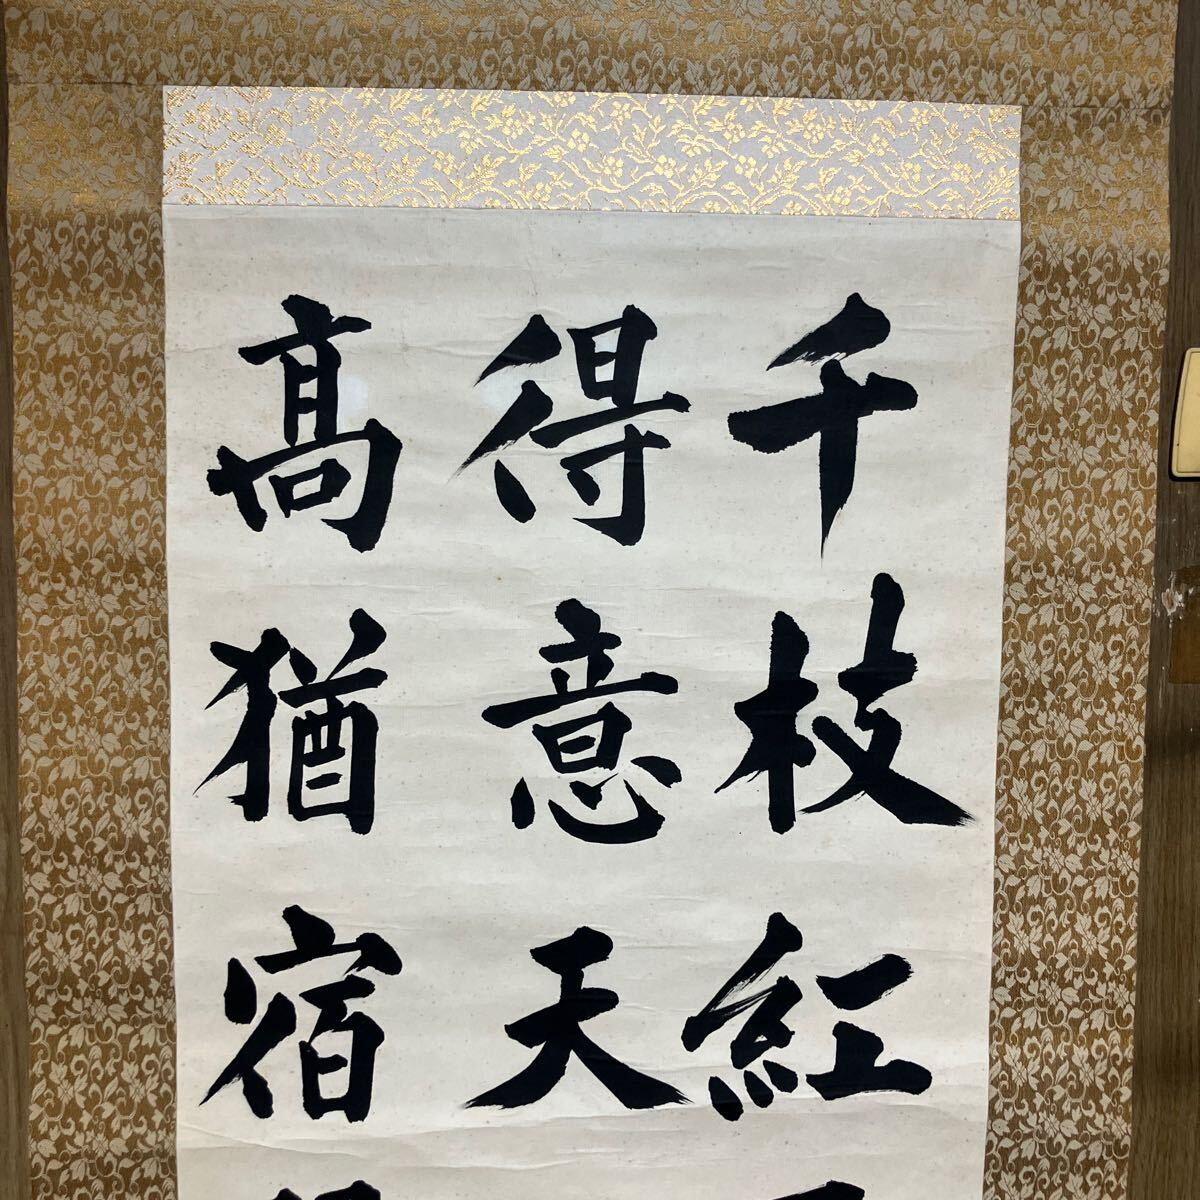 千枝紅
得意天
高猶宿